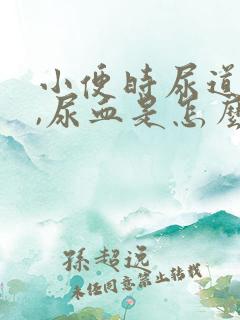 小便時尿道
,尿血是怎麼
孫超说
未经同意禁止转载